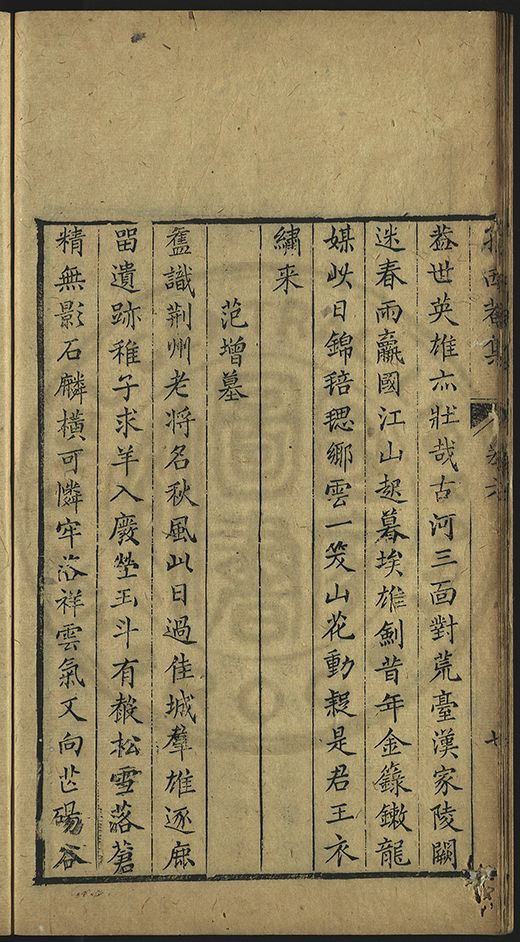 蓋世英雄亦壯哉古河三面對荒臺漢家陵闕
迷春雨嬴國江山起暮埃雄劍昔年金籙鏉龍
媒此日錦毰毸鄉雲一笑山花動疑是君王衣
繡来
范增墓
舊識荆州老將名秋風此日過佳城羣雄逐鹿
留遺跡稚子求羊入廢塋玉斗有聲松雪落蒼
精無影石麟橫可憐牢落祥雲氣又向芒碭谷